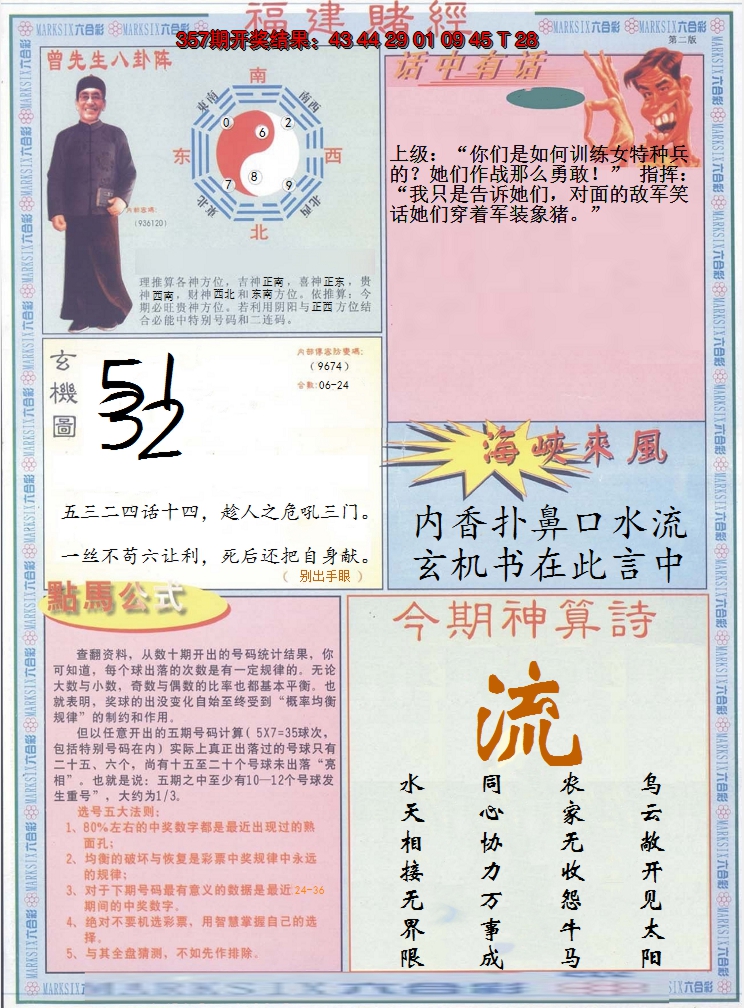 福建賭經
357期开奖结果：43 44 29 01 09 45 T 28
MARKSIX六合彩
第二版
曾先生八卦阵
南
东南
南西
0
6
2
东
西
7
8
9
東北
北西
北
（936120）
理推算各神方位，吉神正南，喜神正东，贵
神西南，财神西北和东南方位。依推算：今
期必旺贵神方位。若利用阴阳与正西方位结
合必能中特别号码和二连码。
话中有话
上级：“你们是如何训练女特种兵
的？她们作战那么勇敢！” 指挥：
“我只是告诉她们，对面的敌军笑
话她们穿着军装象猪。”
玄機圖
51
32
（9674）
合数:06-24
五三二四话十四，趁人之危吼三门。
一丝不苟六让利，死后还把自身献。
（ 别出手眼 ）
海峽來風
内香扑鼻口水流
玄机书在此言中
點馬公式
查翻资料，从数十期开出的号码统计结果，你
可知道，每个球出落的次数是有一定规律的。无论
大数与小数，奇数与偶数的比率也都基本平衡。也
就表明，奖球的出没变化自始至终受到“概率均衡
规律”的制约和作用。
但以任意开出的五期号码计算（5X7=35球次，
包括特别号码在内）实际上真正出落过的号球只有
二十五、六个，尚有十五至二十个号球未出落“亮
相”。也就是说：五期之中至少有10—12个号球发
生重号”，大约为1/3。
选号五大法则：
1、80%左右的中奖数字都是最近出现过的熟
面孔；
2、均衡的破坏与恢复是彩票中奖规律中永远
的规律；
3、对于下期号码最有意义的数据是最近24-36
期间的中奖数字。
4、绝对不要机选彩票，用智慧掌握自己的选
择。
5、与其全盘猜测，不如先作排除。
今期神算詩
流
乌云敞开见太阳
农家无收怨牛马
同心协力万事成
水天相接无界限